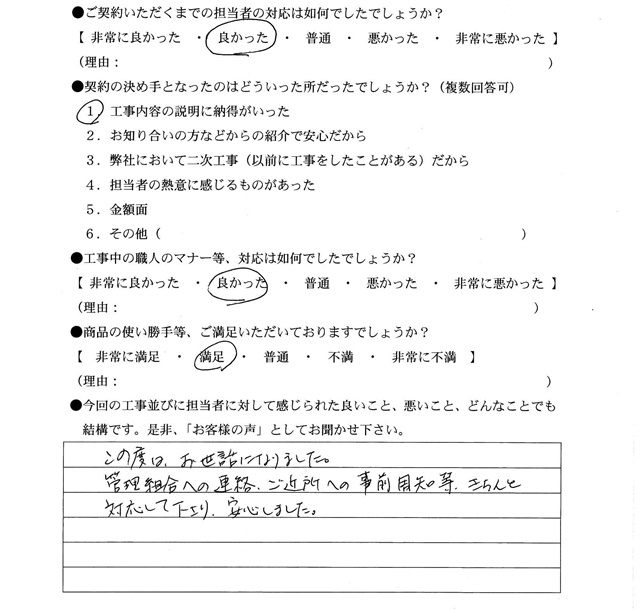 ●ご契約いただくまでの担当者の対応は如何でしたでしょうか？
【 非常に良かった ・ 良かった ・ 普通 ・ 悪かった ・ 非常に悪かった 】
（理由： ）
●契約の決め手となったのはどういった所だったでしょうか？（複数回答可）
1．工事内容の説明に納得がいった
2．お知り合いの方などからの紹介で安心だから
3．弊社において二次工事（以前に工事をしたことがある）だから
4．担当者の熱意に感じるものがあった
5．金額面
6．その他（ ）
●工事中の職人のマナー等、対応は如何でしたでしょうか？
【 非常に良かった ・ 良かった ・ 普通 ・ 悪かった ・ 非常に悪かった 】
（理由： ）
●商品の使い勝手等、ご満足いただいておりますでしょうか？
【 非常に満足 ・ 満足 ・ 普通 ・ 不満 ・ 非常に不満 】
（理由： ）
●今回の工事並びに担当者に対して感じられた良いこと、悪いこと、どんなことでも
結構です。是非、「お客様の声」としてお聞かせ下さい。
この度は、お世話になりました。
管理組合への連絡、ご近所への事前周知等、きちんと
対応して下さり、安心しました。